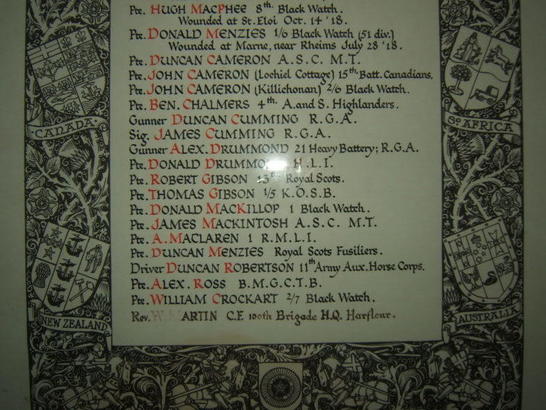 Pte. HUGH MACPHEE 8th. Black Watch.
Wounded at St. Eloi Oct. 14 '18.
Pte. DONALD MENZIES 1/6 Black Watch (51 div.)
Wounded at Marne, near Rheims July 28 '18.
Pte. DUNCAN CAMERON A.S.C. M.T.
Pte. JOHN CAMERON (Lochiel Cottage) 15th. Batt. Canadians.
Pte. JOHN CAMERON (Killichonan) 2/6 Black Watch.
Pte. BEN. CHALMERS 4th. A. and S. Highlanders.
Gunner DUNCAN CUMMING R.G.A.
Sig. JAMES CUMMING R.G.A.
Gunner ALEX. DRUMMOND 21 Heavy Battery; R.G.A.
Pte. DONALD DRUMMOND H.L.I.
Pte. ROBERT GIBSON Royal Scots.
Pte. THOMAS GIBSON 1/5 K.O.S.B.
Pte. DONALD MACKILLOP 1 Black Watch.
Pte. JAMES MACKINTOSH A.S.C. M.T.
Pte. A. MACLAREN 1 R.M.L.I.
Pte. DUNCAN MENZIES Royal Scots Fusiliers.
Driver DUNCAN ROBERTSON 11th Army Aux. Horse Corps.
Pte. ALEX. ROSS B.M.G.C.T.B.
Pte. WILLIAM CROCKART 2/7 Black Watch.
Rev. W. MARTIN C.F. 100th Brigade H.Q. Harfleur.
CANADA
Sth AFRICA
NEW ZEALAND
AUSTRALIA